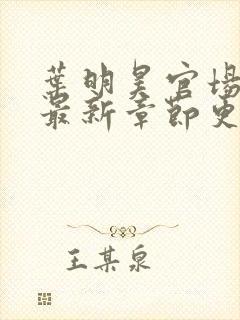 葉明昊官场
最新章節更
王某泉